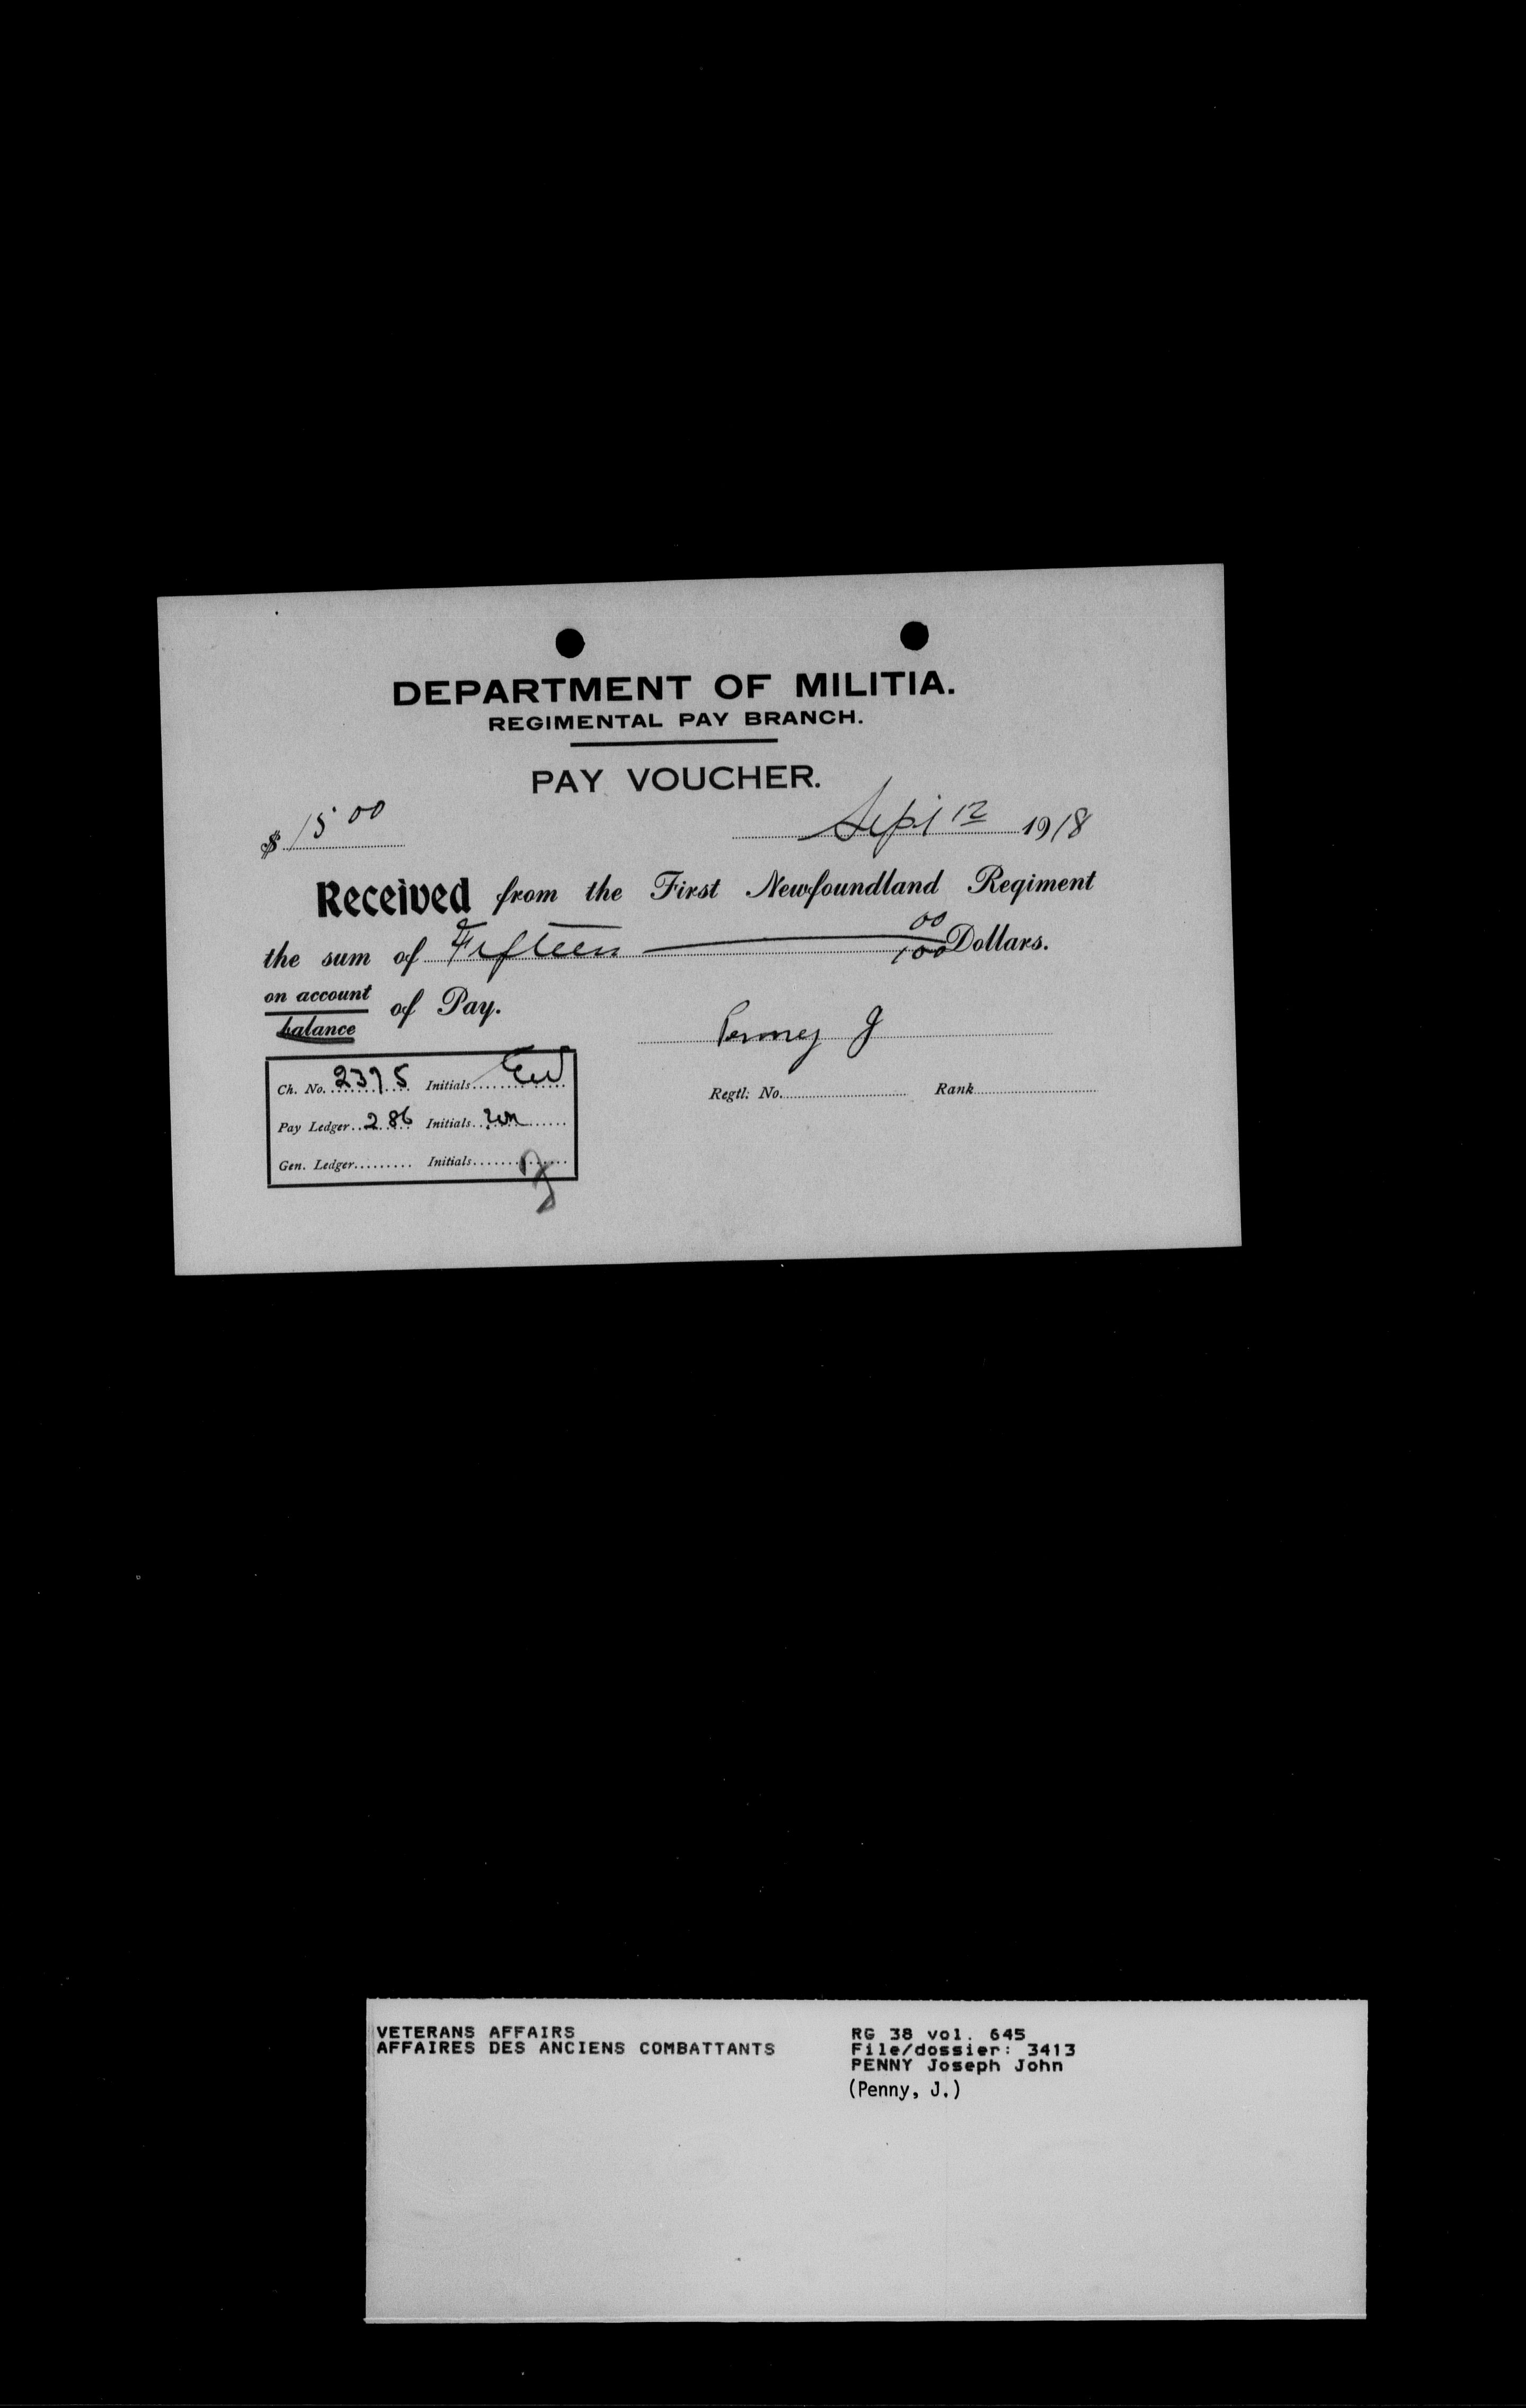 DEPARTMENT OF MILITIA.
REGIMENTAL PAY BRANCH.
PAY VOUCHER.
$ 15 00
Sept 12 1918
Received from the First Newfoundland Regiment
the sum of Fifteen 00/100 Dollars.
on account
balance of Pay.
Penney J
Ch. No. 2375 Initials
Regtl. No. Rank
Pay Ledger 286 Initials
Gen. Ledger Initials
VETERANS AFFAIRS
AFFAIRES DES ANCIENS COMBATTANTS
RG 38 vol. 645
File/dossier: 3413
PENNY Joseph John
(Penny, J.)